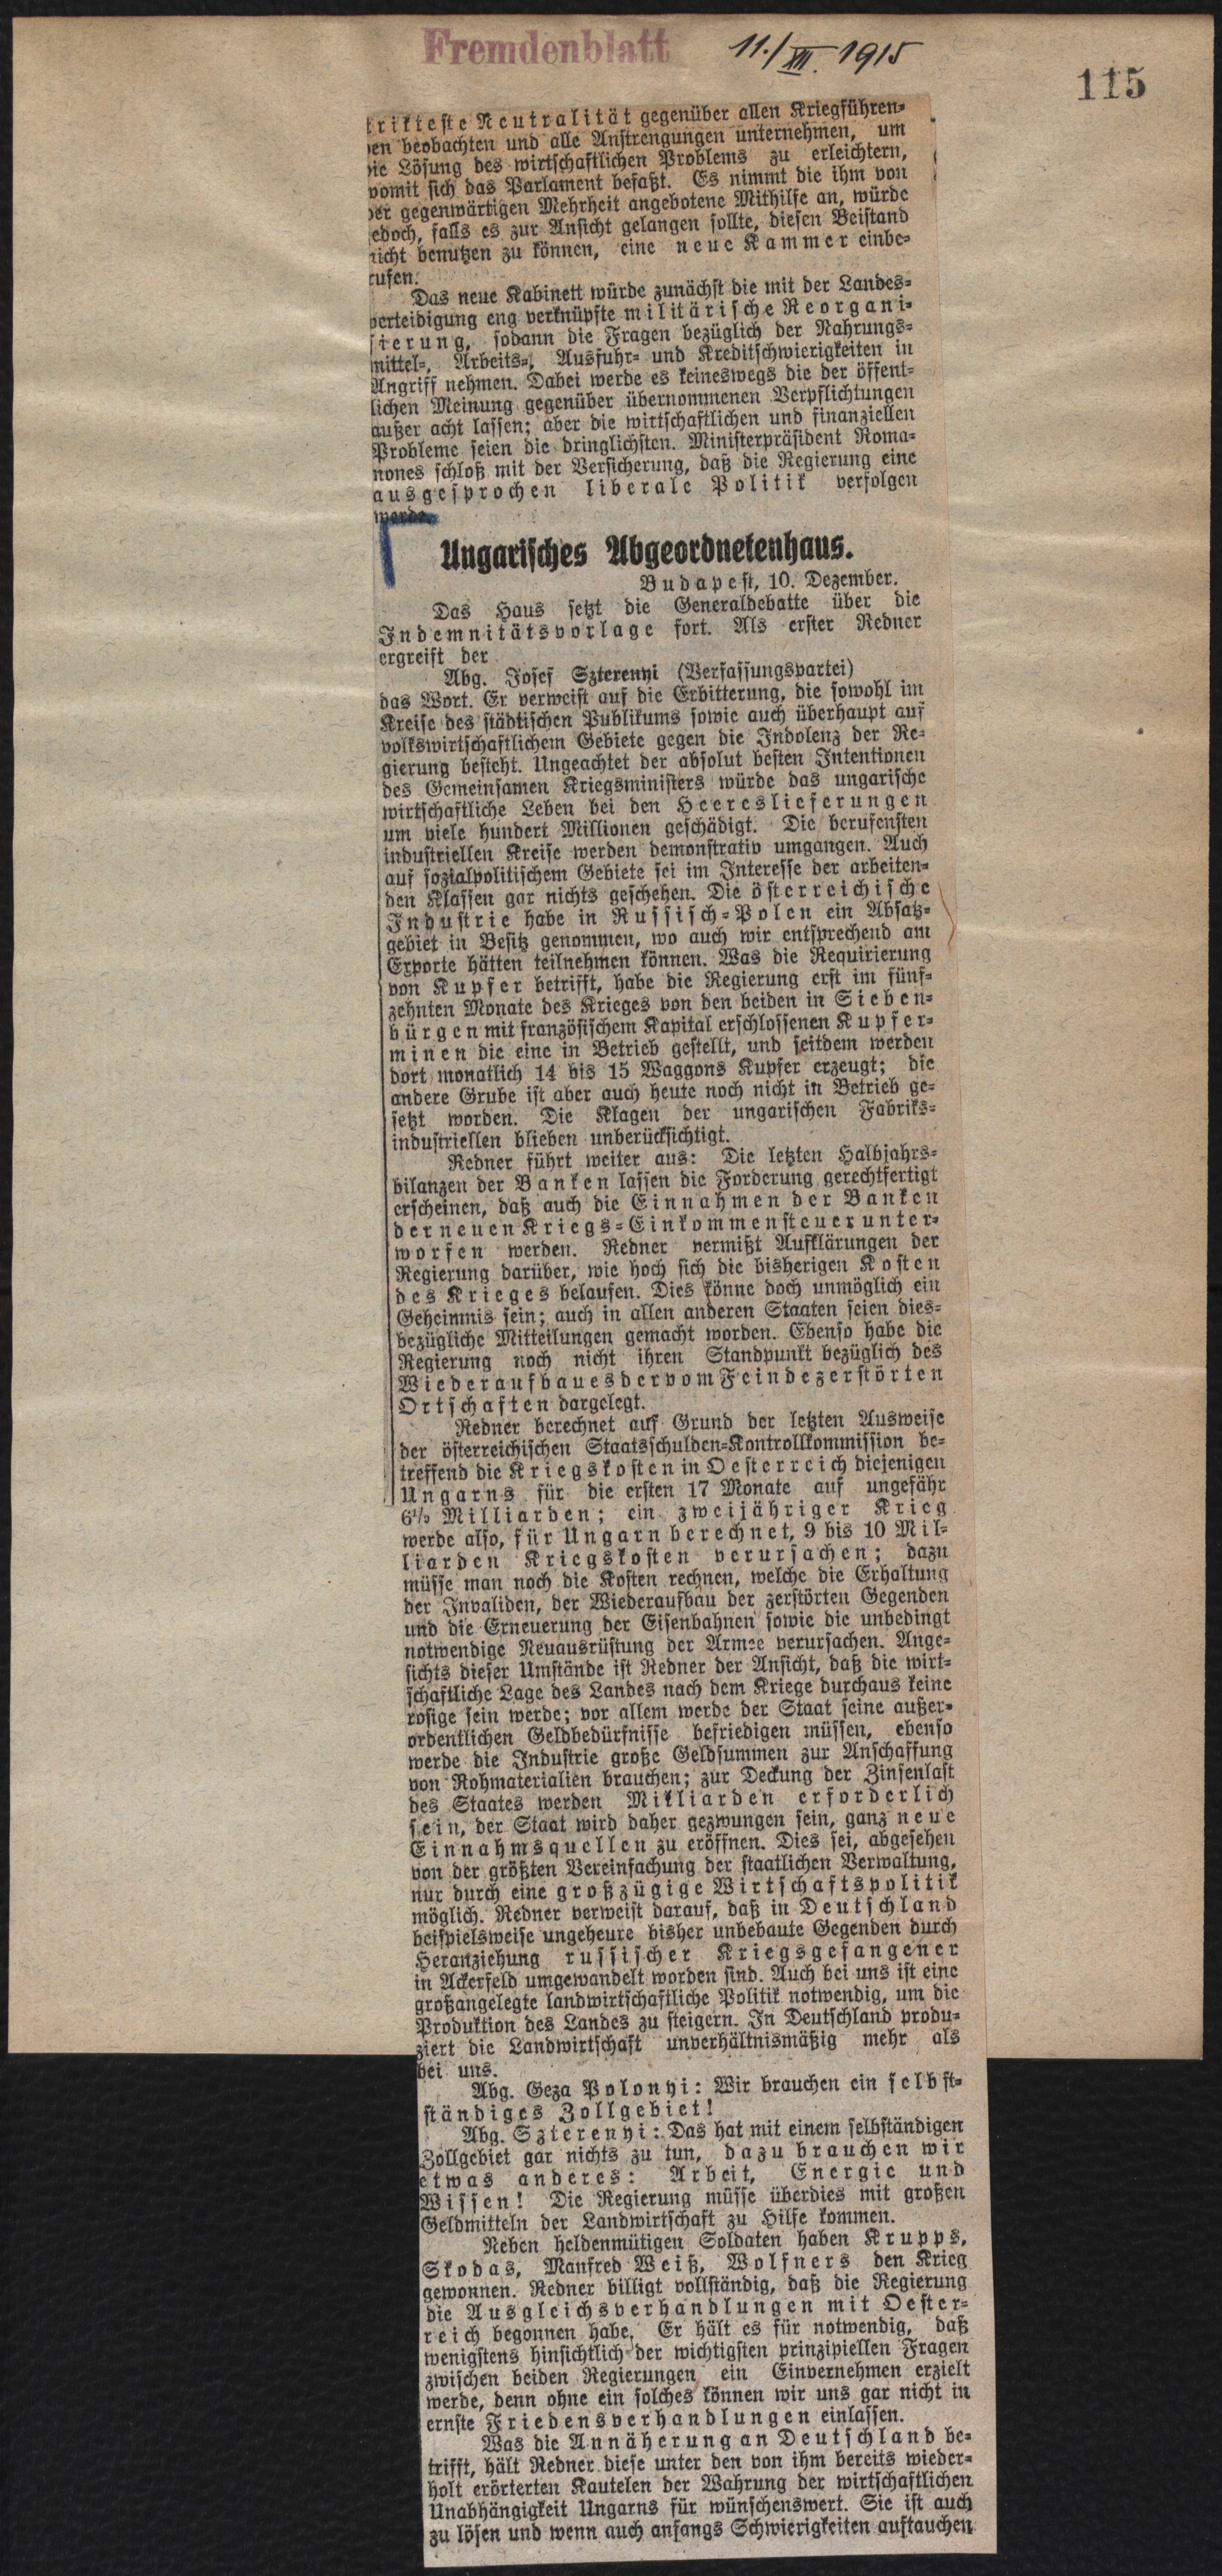 Fremdenblatt
11./XII. 1915
115
trikteste Neutralität gegenüber allen Kriegführen-
en beobachten und alle Anstrengungen unternehmen, um
ie Lösung des wirtschaftlichen Problems zu erleichtern,
vomit sich das Parlament befaßt. Es nimmt die ihm von
er gegenwärtigen Mehrheit angebotene Mithilfe an, würde
edoch, falls es zur Ansicht gelangen sollte, diesen Beistand
nicht benutzen zu können, eine neue Kammer einbe-
rufen.
Das neue Kabinett würde zunächst die mit der Landes-
verteidigung eng verknüpfte militärische Reorgani-
sierung, sodann die Fragen bezüglich der Nahrungs-
mittel-, Arbeits-, Ausfuhr- und Kreditschwierigkeiten in
Angriff nehmen. Dabei werde es keineswegs die der öffent-
lichen Meinung gegenüber übernommenen Verpflichtungen
außer acht lassen; aber die wirtschaftlichen und finanziellen
Probleme seien die dringlichsten. Ministerpräsident Roma-
nones schloß mit der Versicherung, daß die Regierung eine
ausgesprochen liberale Politik verfolgen
werde.
Ungarisches Abgeordnetenhaus.
Budapest, 10. Dezember.
Das Haus setzt die Generaldebatte über die
Indemnitätsvorlage fort. Als erster Redner
ergreift der
Abg. Josef Szterenyi (Verfassungspartei)
das Wort. Er verweist auf die Erbitterung, die sowohl im
Kreise des städtischen Publikums sowie auch überhaupt auf
volkswirtschaftlichem Gebiete gegen die Indolenz der Re-
gierung besteht. Ungeachtet der absolut besten Intentionen
des Gemeinsamen Kriegsministers würde das ungarische
wirtschaftliche Leben bei den Heereslieferungen
um viele hundert Millionen geschädigt. Die berufensten
industriellen Kreise werden demonstrativ umgangen. Auch
auf sozialpolitischem Gebiete sei im Interesse der arbeiten-
den Klassen gar nichts geschehen. Die österreichische
Industrie habe in Russisch-Polen ein Absatz-
gebiet in Besitz genommen, wo auch wir entsprechend am
Exporte hätten teilnehmen können. Was die Requirierung
von Kupfer betrifft, habe die Regierung erst im fünf-
zehnten Monate des Krieges von den beiden in Sieben-
bürgen mit französischem Kapital erschlossenen Kupfer-
minen die eine in Betrieb gestellt, und seitdem werden
dort monatlich 14 bis 15 Waggons Kupfer erzeugt; die
andere Grube ist aber auch heute noch nicht in Betrieb ge-
setzt worden. Die Klagen der ungarischen Fabriks-
industriellen blieben unberücksichtigt.
Redner führt weiter aus: Die letzten Halbjahrs-
bilanzen der Banken lassen die Forderung gerechtfertigt
erscheinen, daß auch die Einnahmen der Banken
der neuen Kriegs-Einkommensteuer unter-
worfen werden. Redner vermißt Aufklärungen der
Regierung darüber, wie hoch sich die bisherigen Kosten
des Krieges belaufen. Dies könne doch unmöglich ein
Geheimnis sein; auch in allen anderen Staaten seien dies-
bezügliche Mitteilungen gemacht worden. Ebenso habe die
Regierung noch nicht ihren Standpunkt bezüglich des
Wiederaufbaues der vom Feinde zerstörten
Ortschaften dargelegt.
Redner berechnet auf Grund der letzten Ausweise
der österreichischen Staatsschulden-Kontrollkommission be-
treffend die Kriegskosten in Oesterreich diejenigen
Ungarns für die ersten 17 Monate auf ungefähr
6½ Milliarden; ein zweijähriger Krieg
werde also, für Ungarn berechnet, 9 bis 10 Mil-
liarden Kriegskosten verursachen; dazu
müsse man noch die Kosten rechnen, welche die Erhaltung
der Invaliden, der Wiederaufbau der zerstörten Gegenden
und die Erneuerung der Eisenbahnen sowie die unbedingt
notwendige Neuausrüstung der Armee verursachen. Ange-
sichts dieser Umstände ist Redner der Ansicht, daß die wirt-
schaftliche Lage des Landes nach dem Kriege durchaus keine
rosige sein werde; vor allem werde der Staat seine außer-
ordentlichen Geldbedürfnisse befriedigen müssen, ebenso
werde die Industrie große Geldsummen zur Anschaffung
von Rohmaterialien brauchen; zur Deckung der Zinsenlast
des Staates werden Milliarden erforderlich
sein, der Staat wird daher gezwungen sein, ganz neue
Einnahmsquellen zu eröffnen. Dies sei, abgesehen
von der größten Vereinfachung der staatlichen Verwaltung,
nur durch eine großzügige Wirtschaftspolitik
möglich. Redner verweist darauf, daß in Deutschland
beispielsweise ungeheure bisher unbebaute Gegenden durch
Heranziehung russischer Kriegsgefangener
in Ackerfeld umgewandelt worden sind. Auch bei uns ist eine
großangelegte landwirtschaftliche Politik notwendig, um die
Produktion des Landes zu steigern. In Deutschland produ-
ziert die Landwirtschaft unverhältnismäßig mehr als
bei uns.
Abg. Geza Polonyi: Wir brauchen ein selbst-
ständiges Zollgebiet!
Abg. Szterenyi: Das hat mit einem selbständigen
Zollgebiet gar nichts zu tun, dazu brauchen wir
etwas anderes: Arbeit, Energie und
Wissen! Die Regierung müsse überdies mit großen
Geldmitteln der Landwirtschaft zu Hilfe kommen.
Neben heldenmütigen Soldaten haben Krupps,
Skodas, Manfred Weiß, Wolfners den Krieg
gewonnen. Redner billigt vollständig, daß die Regierung
die Ausgleichsverhandlungen mit Oester-
reich begonnen habe. Er hält es für notwendig, daß
wenigstens hinsichtlich der wichtigsten prinzipiellen Fragen
zwischen beiden Regierungen ein Einvernehmen erzielt
werde, denn ohne ein solches können wir uns gar nicht in
ernste Friedensverhandlungen einlassen.
Was die Annäherung an Deutschland be-
trifft, hält Redner diese unter den von ihm bereits wieder-
holt erörterten Kautelen der Wahrung der wirtschaftlichen
Unabhängigkeit Ungarns für wünschenswert. Sie ist auch
zu lösen und wenn auch anfangs Schwierigkeiten auftauchen